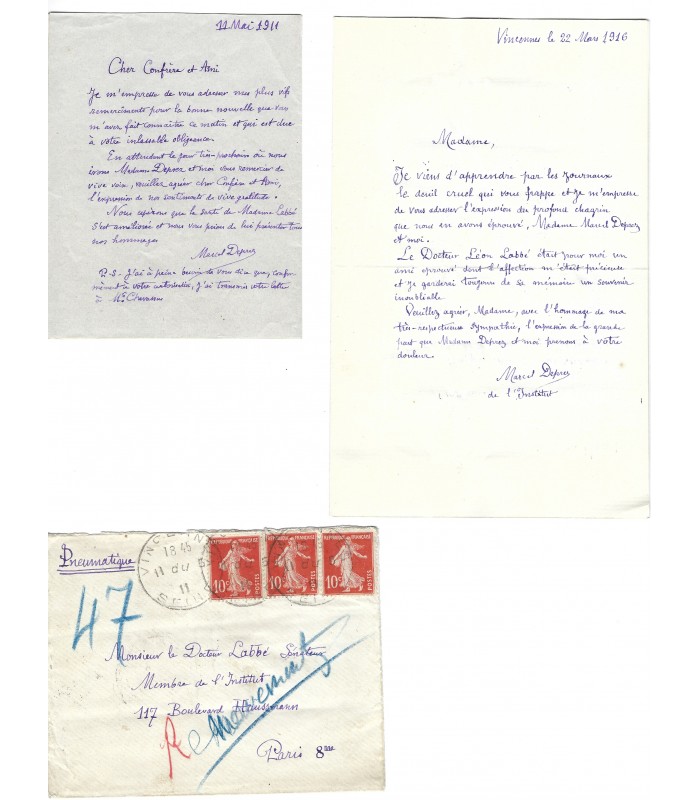 11 Mai 1911
Cher Confrère et Ami
Je m'empresse de vous adresser mes plus vifs
remerciments pour la bonne nouvelle que vous
m'avez fait connaître ce matin et qui est due
à votre inlassable obligeance.
En attendant le jour très-prochain où nous
irons Madame Deprez et moi vous remercier de
vive voix, veuillez agréer cher Confrère et Ami,
l'expression de nos sentiments de vive gratitude.
Nous espérons que la santé de Madame Labbé
s'est améliorée et nous vous prions de lui présenter tous
nos hommages
Marcel Deprez
P.S. J'ai à peine besoin de vous dire que, confor-
mément à votre autorisation, j'ai transmis votre lettre
à Mr
Vincennes le 22 Mars 1916
Madame,
Je viens d'apprendre par les journaux
le deuil cruel qui vous frappe et je m'empresse
de vous adresser l'expression du profond chagrin
que nous en avons éprouvé, Madame Marcel Deprez
et moi.
Le Docteur Léon Labbé était pour moi un
ami éprouvé dont l'affection m'était précieuse
et je garderai toujours de sa mémoire un souvenir
inoubliable.
Veuillez agréer, Madame, avec l'hommage de ma
très-respectueuse sympathie, l'expression de la grande
part que Madame Deprez et moi prenons à votre
douleur.
Marcel Deprez
de l'Institut
Pneumatique
VINCENNES
18 45
11
11
SEINE
REPUBLIQUE FRANÇAISE
10c POSTES
REPUBLIQUE FRANÇAISE
10c POSTES
REPUBLIQUE FRANÇAISE
10c POSTES
47
Monsieur le Docteur Labbé Sénateur
Membre de l'Institut
117 Boulevard Haussmann
Paris 8me
Remerciements